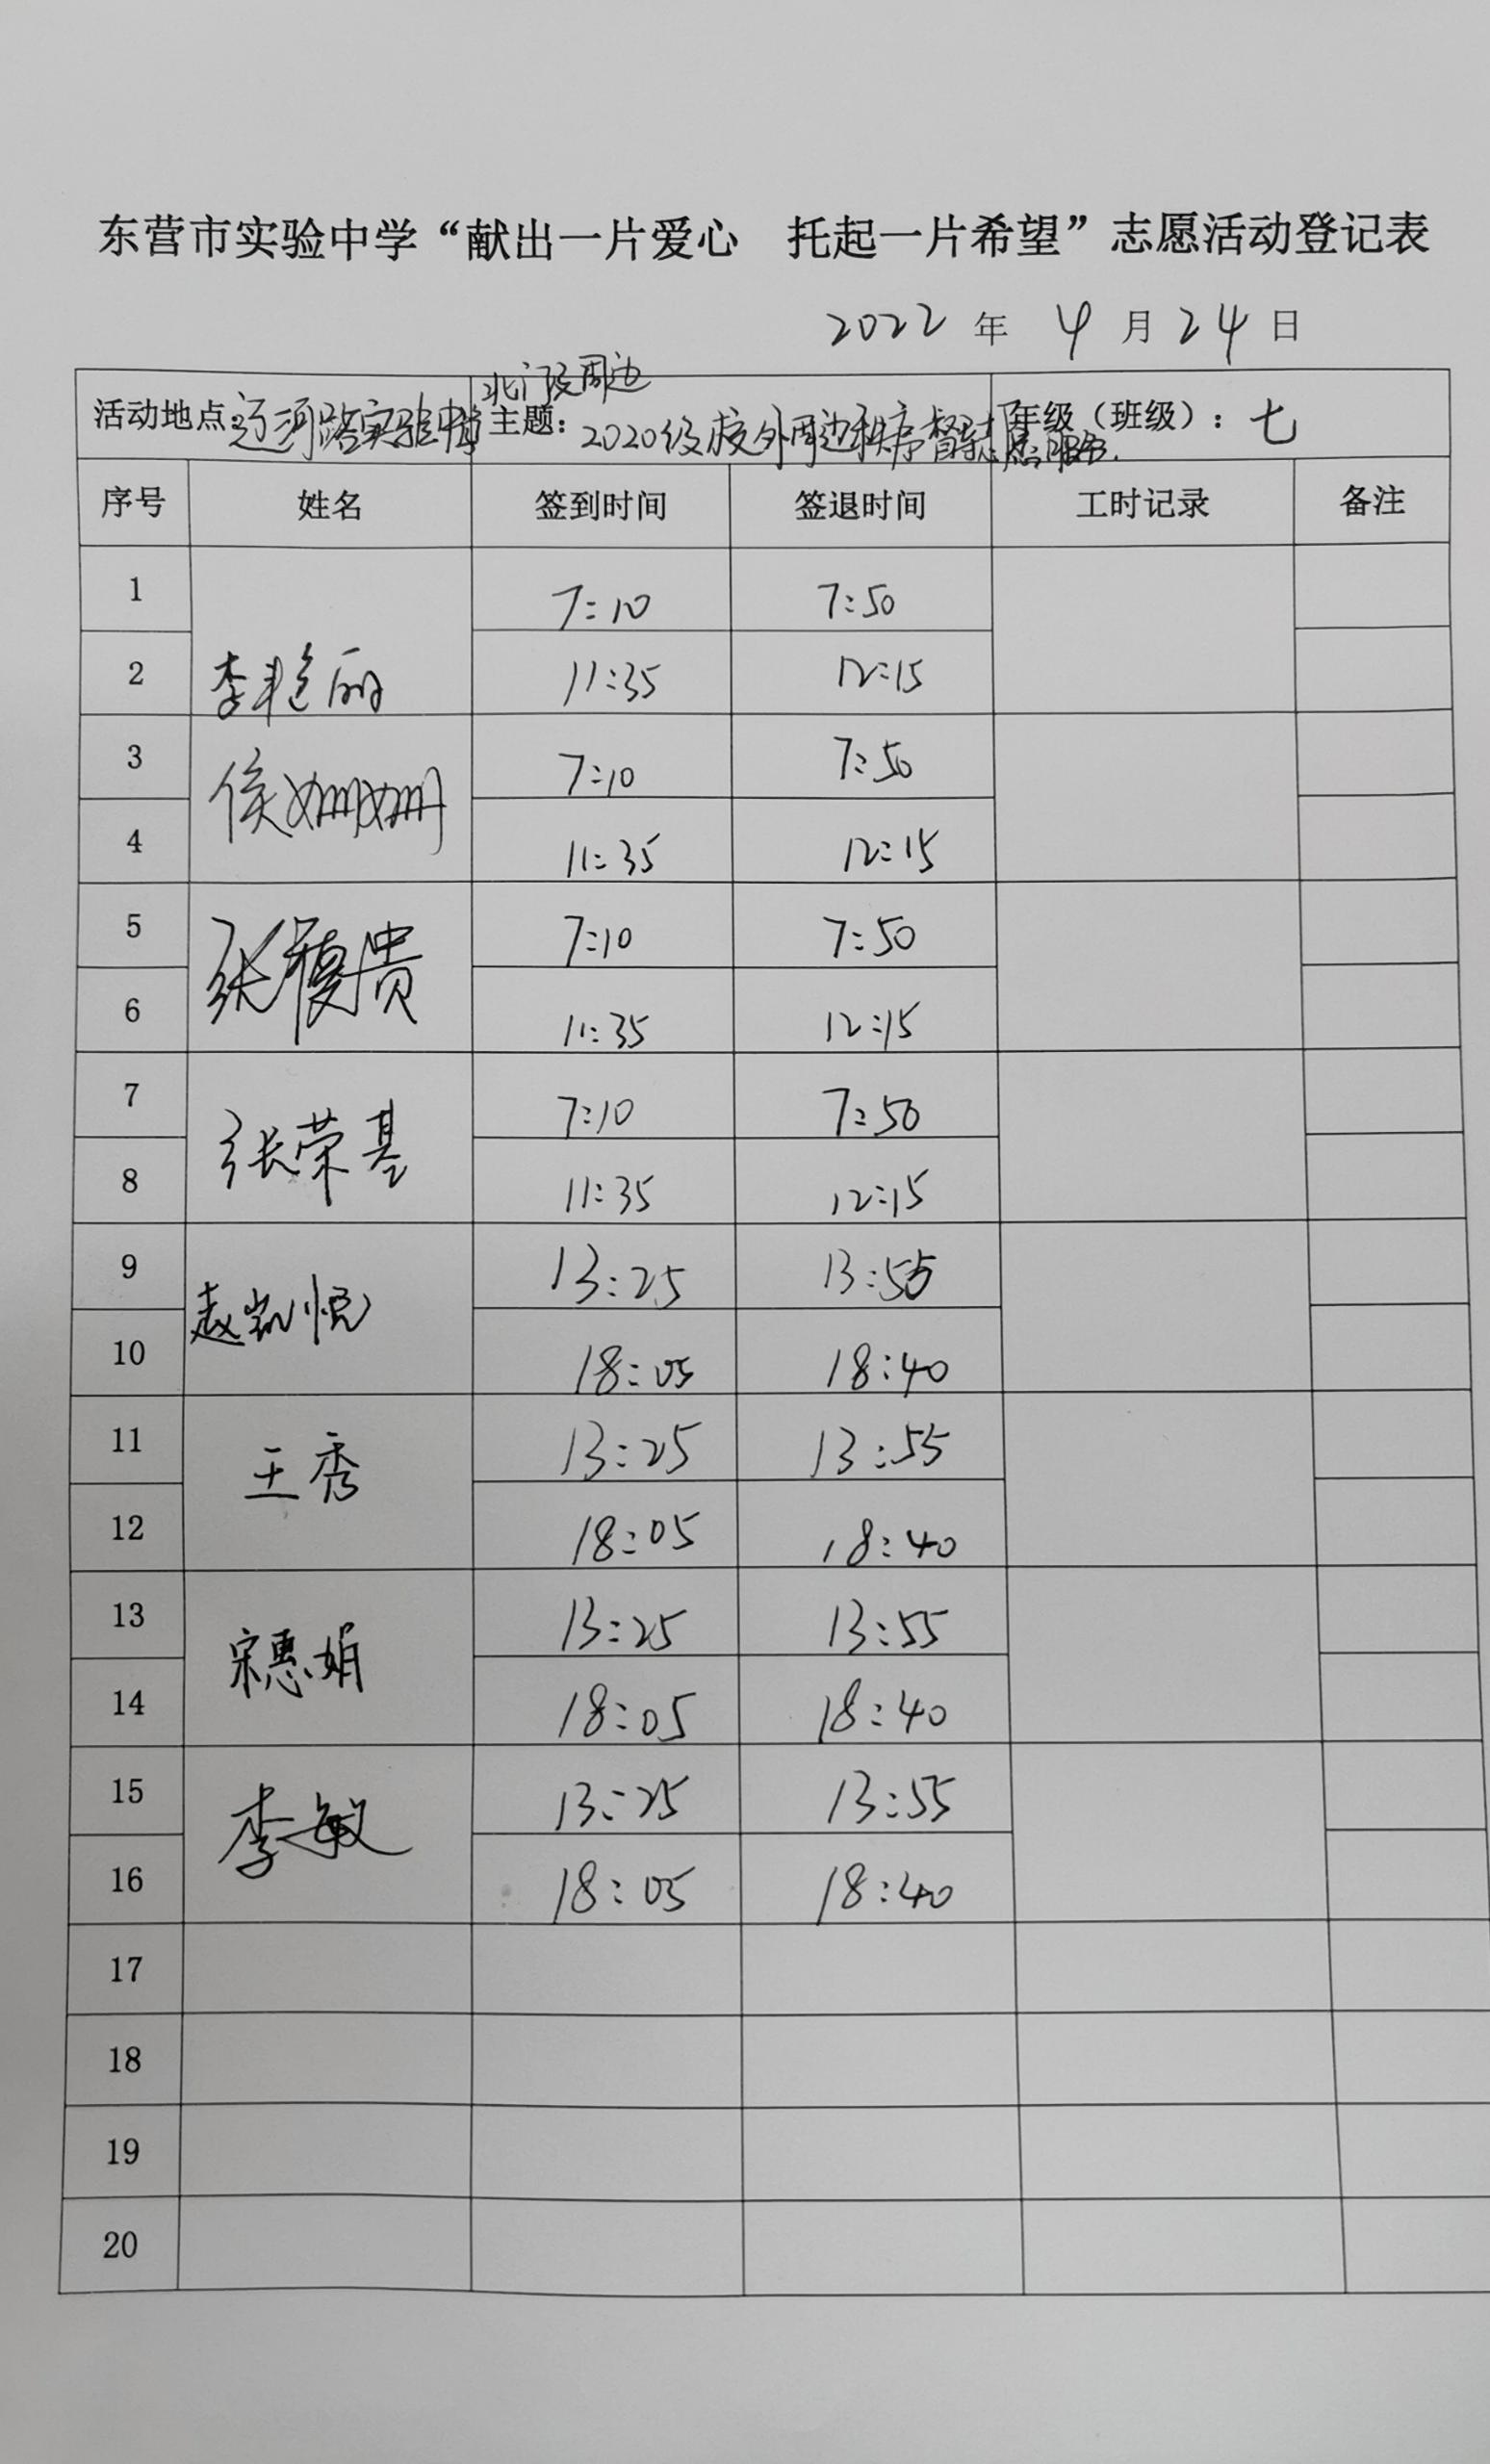 东营市实验中学“献出一片爱心 托起一片希望”志愿活动登记表
2022 年 4 月 24 日
北门及周边
活动地点:辽河路实验中学 主题: 2020级校外周边秩序督导志愿服务. 年级（班级）: 七
序号 姓名 签到时间 签退时间 工时记录 备注
1 7:10 7:50
李艳丽
2 11:35 12:15
3 7:10 7:50
侯姗姗
4 11:35 12:15
5 7:10 7:50
张 贵
6 11:35 12:15
7 7:10 7:50
张荣基
8 11:35 12:15
9 13:25 13:55
赵凯悦
10 18:05 18:40
11 13:25 13:55
王秀
12 18:05 18:40
13 13:25 13:55
宋惠娟
14 18:05 18:40
15 13:25 13:55
李敏
16 18:05 18:40
17
18
19
20